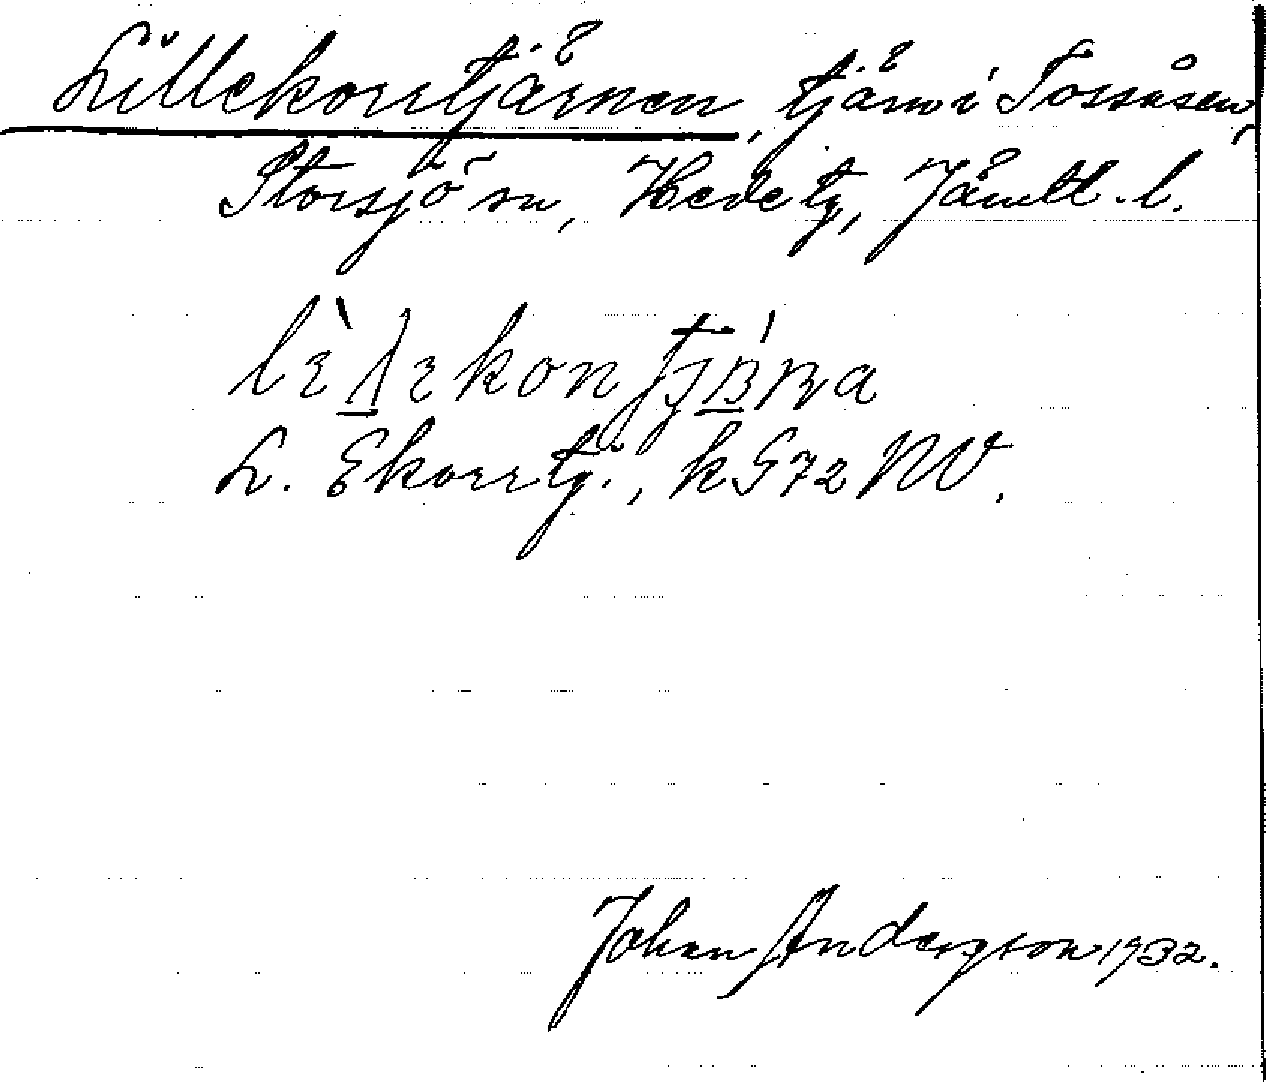 Lillekorrtjärnen, tjärn i Tossåsen,
Storsjö sn, Hede tg, Jämtl. l.
L. Ekorrtj., k G72 NV.
Johan Anderson 1932.